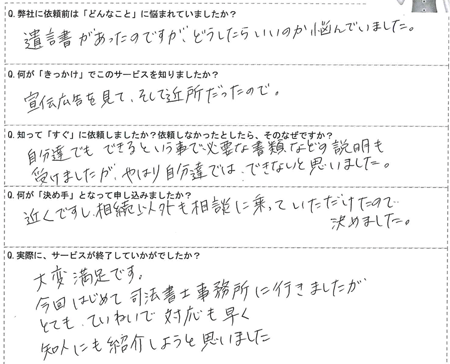 Q. 弊社に依頼前は「どんなこと」に悩まれていましたか？
遺言書があったのですが、どうしたらいいのか悩んでいました。
Q. 何が「きっかけ」でこのサービスを知りましたか？
宣伝広告を見て、そして近所だったので。
Q. 知って「すぐ」に依頼しましたか？依頼しなかったとしたら、そのなぜですか？
自分達でもできるという事で必要な書類などの説明も
受けましたが、やはり自分達では、できないと思いました。
Q. 何が「決め手」となって申し込みましたか？
近くですし、相続以外も相談に乗っていただけたので
決めました。
Q. 実際に、サービスが終了していかがでしたか？
大変満足です。
今回はじめて司法書士事務所に行きましたが
とても、ていねいで対応も早く
知人にも紹介しようと思いました